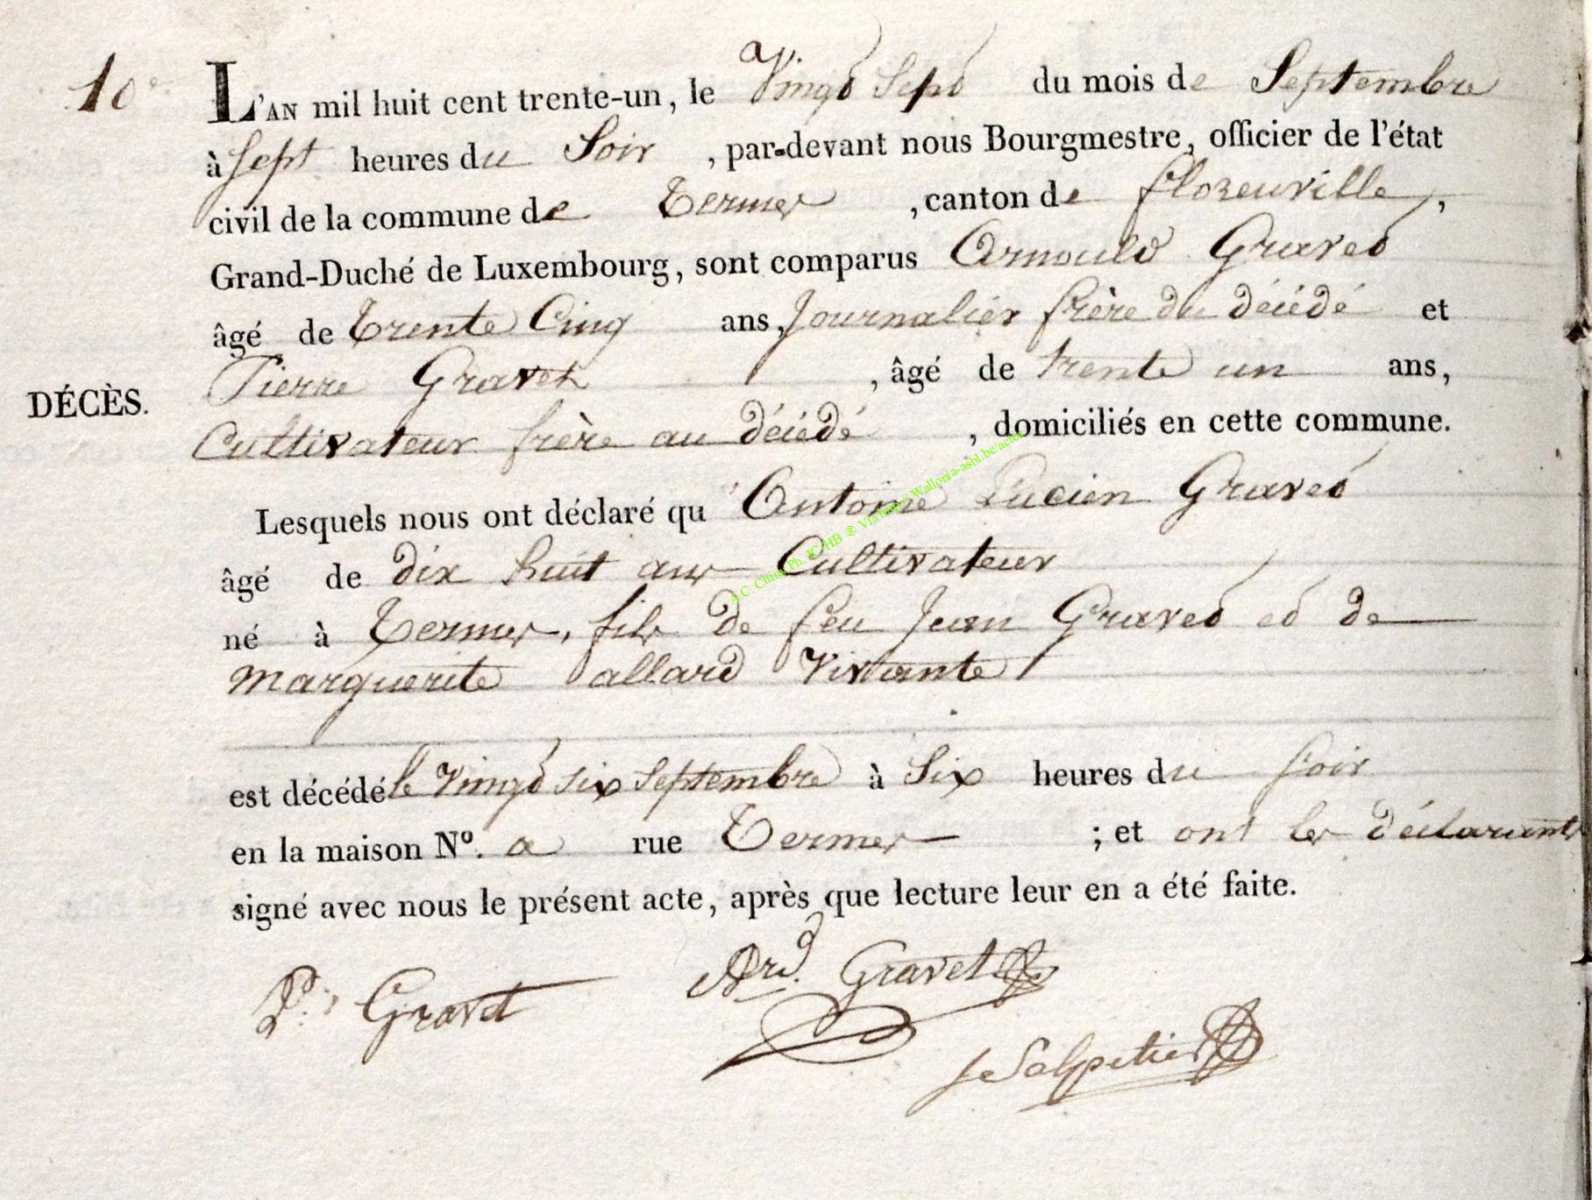 10e
L'AN mil huit cent trente-un, le Vingt Sept du mois de Septembre
à Sept heures du Soir, par-devant nous Bourgmestre, officier de l'état
civil de la commune de Termes, canton de florenville,
Grand-Duché de Luxembourg, sont comparus Arnould Gravet
âgé de trente Cinq ans, Journalier frère du décédé et
Pierre Gravet, âgé de trente un ans,
DÉCÈS.
Cultivateur frère au décédé, domiciliés en cette commune.
Lesquels nous ont déclaré qu'Antoine Lucien Gravet
âgé de dix huit ans Cultivateur
né à Termes, fils de feu Jean Gravet et de
marguerite allard Vivante
est décédé le vingt six Septembre à Six heures du Soir
en la maison No. a rue Termes ; et ont les déclarants
signé avec nous le présent acte, après que lecture leur en a été faite.
P: Gravet
Ard. Gravet
Salpetier